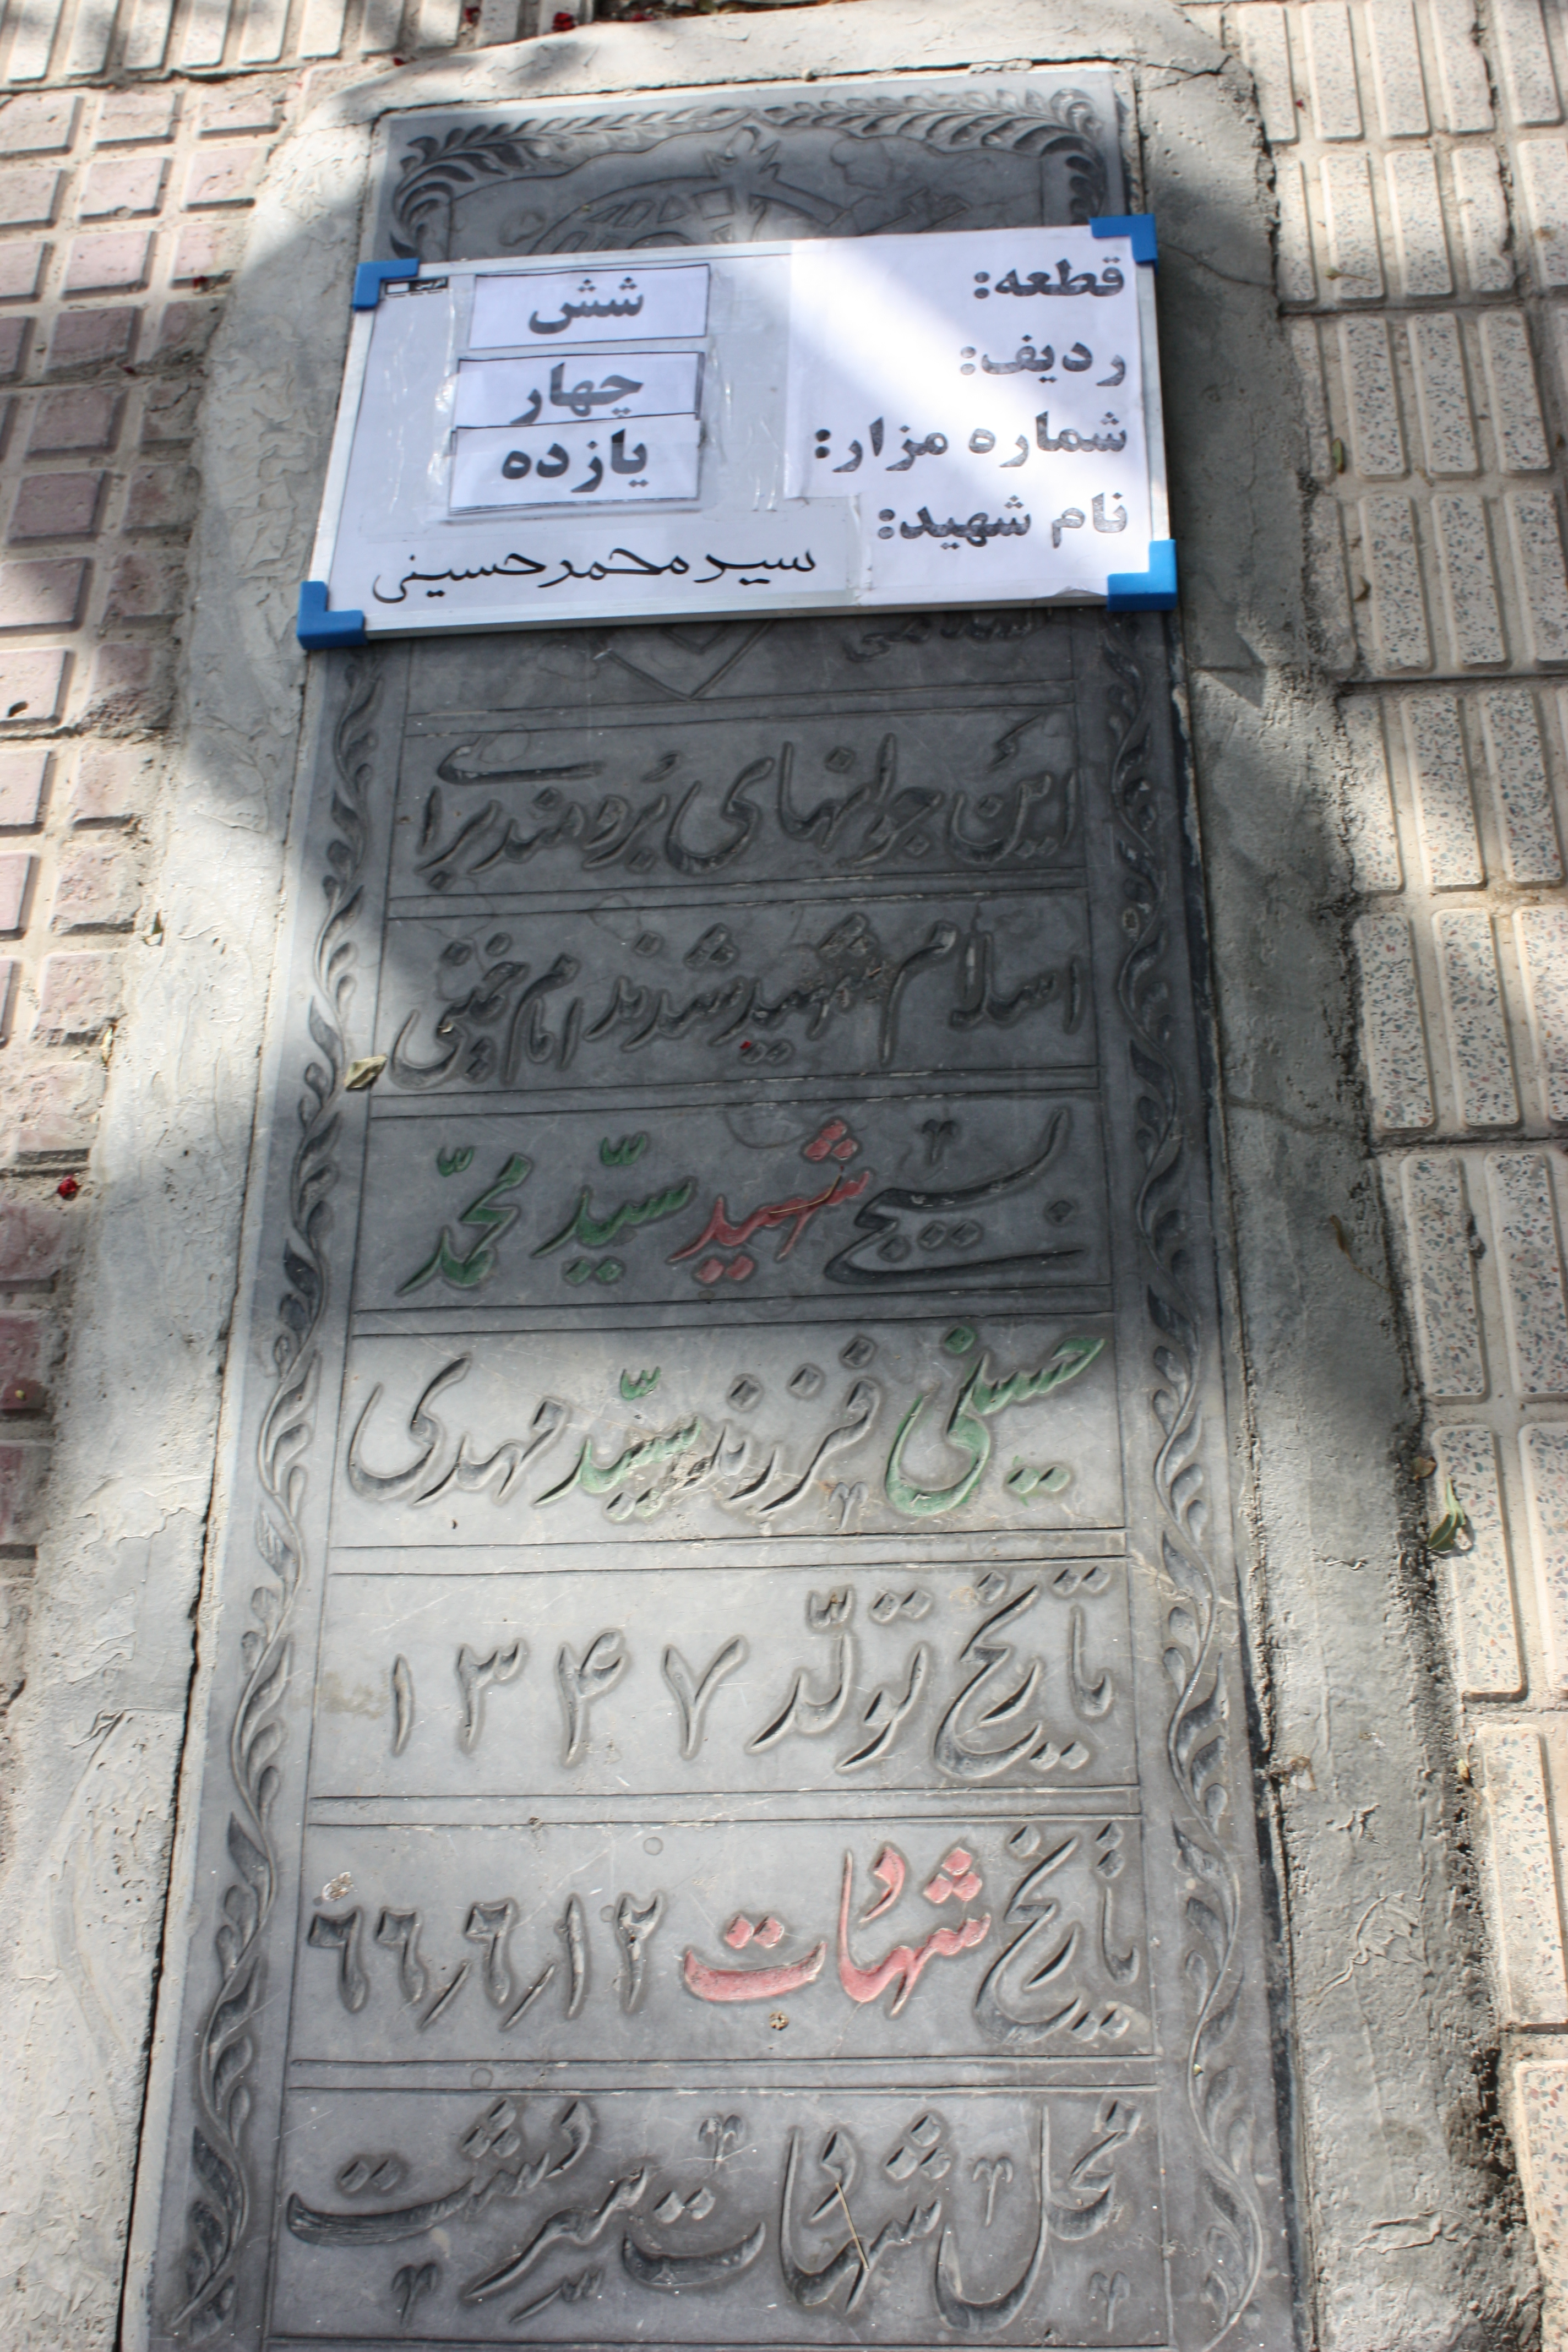 قطعه: شش
ردیف: چهار
شماره مزار: یازده
نام شهید:
سید محمد حسینی
این جوانهای برومند برای
اسلام شهید شدند امام خمینی
بسیجی شهید سیّد محمّد
حسینی فرزند سیّد مهدی
تاریخ تولّد ۱۳۴۷
تاریخ شهادت ۱۲/۶/۶۶
محل شهادت سردشت